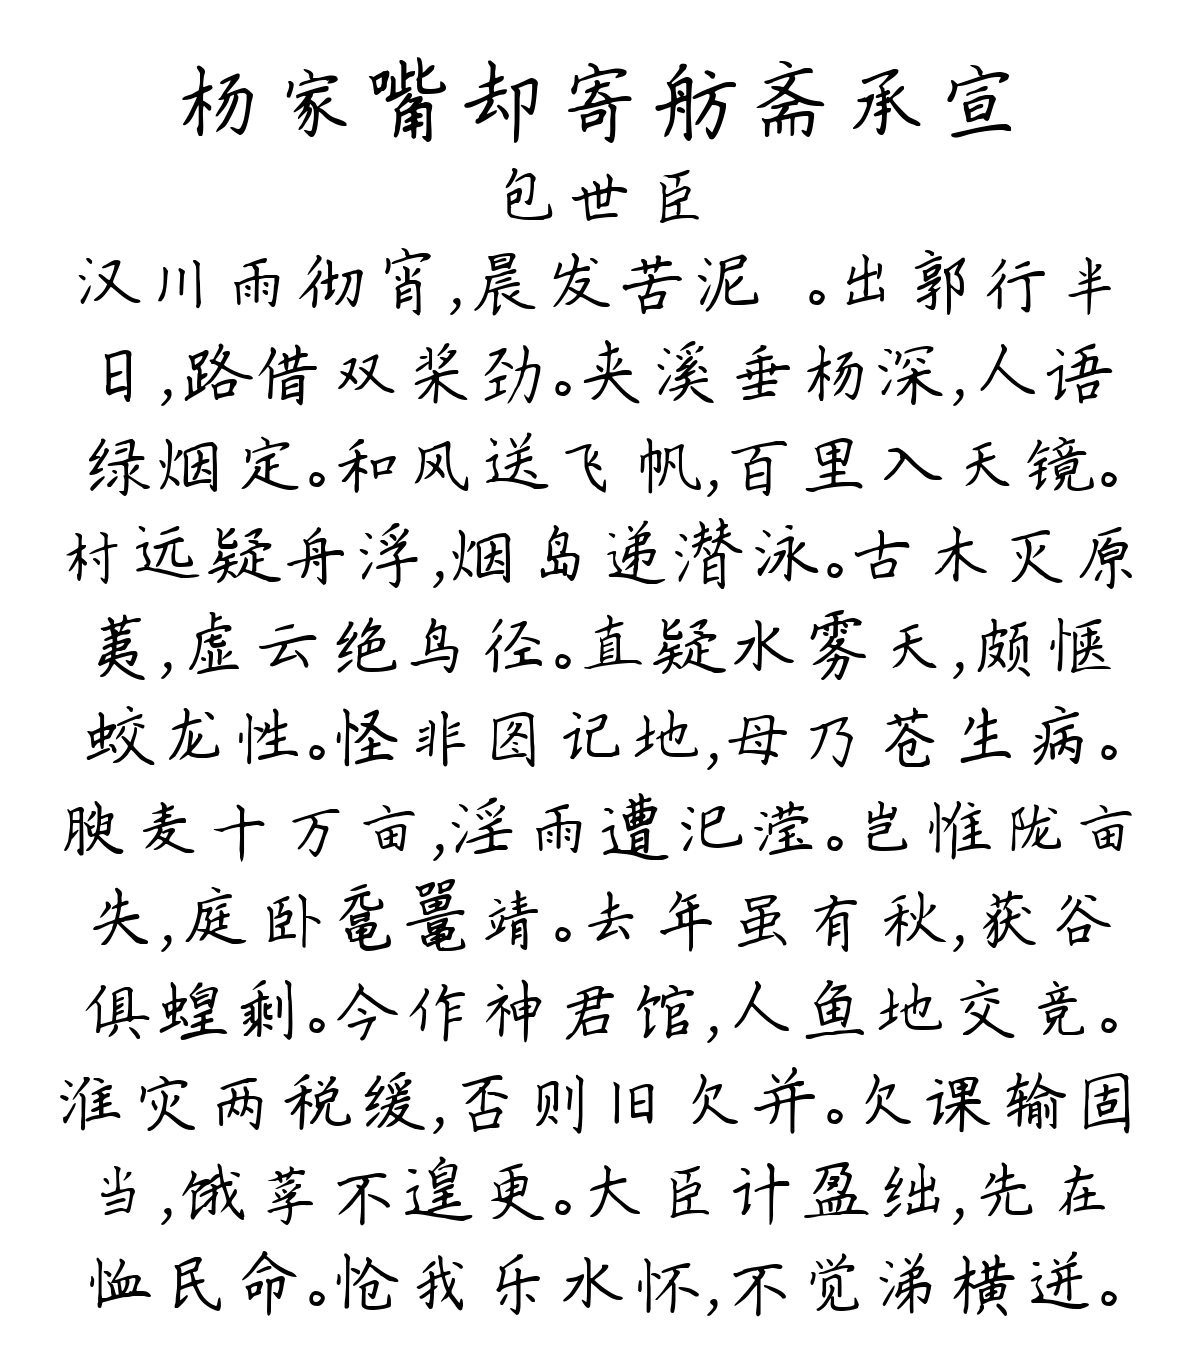 杨家嘴却寄舫斋承宣
包世臣
汉川雨彻宵,晨发苦泥 。出郭行半
日,路借双桨劲。夹溪垂杨深,人语
绿烟定。和风送飞帆,百里入天镜。
村远疑舟浮,烟岛递潜泳。古木灭原
荑,虚云绝鸟径。直疑水雾天,颇惬
蛟龙性。怪非图记地,母乃苍生病。
腴麦十万亩,淫雨遭氾滢。岂惟陇亩
失,庭卧鼋鼍靖。去年虽有秋,获谷
俱蝗剩。今作神君馆,人鱼地交竞。
淮灾两税缓,否则旧欠并。欠课输固
当,饿莩不遑更。大臣计盈绌,先在
恤民命。怆我乐水怀,不觉涕横迸。